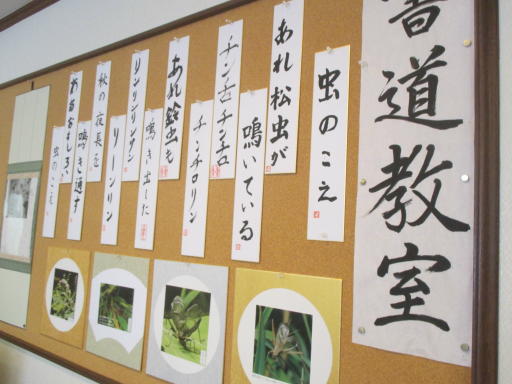 書道教室
虫のこえ
あれ松虫が
鳴いている
チンチロチンチロ
チンチロリン
あれ鈴虫も
鳴き出した
リンリンリンリン
リーンリン
秋の夜長を
鳴き通す
ああおもしろい
虫のこえ